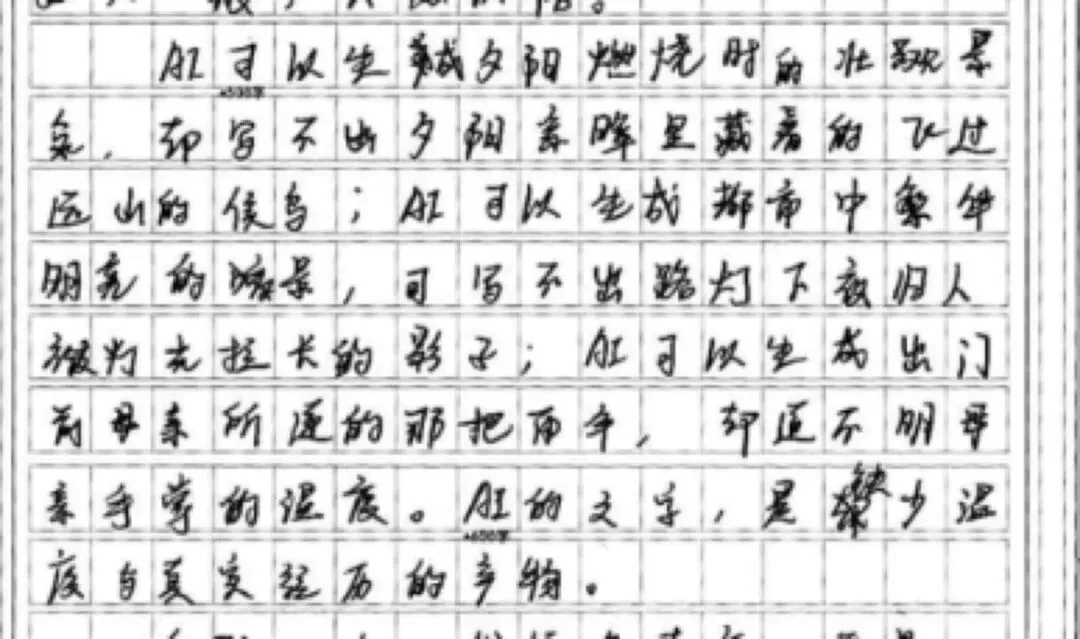 AI可以生成夕阳燃烧时的壮观景
象，却写不出夕阳余晖里藏着的飞过
远山的候鸟；AI可以生成都市中繁华
明亮的晚景，可写不出路灯下夜归人
被灯光拉长的影子；AI可以生成出门
前母亲所递的那把雨伞，却道不明母
亲手掌的温度。AI的文字，是缺少温
度与真实经历的产物。